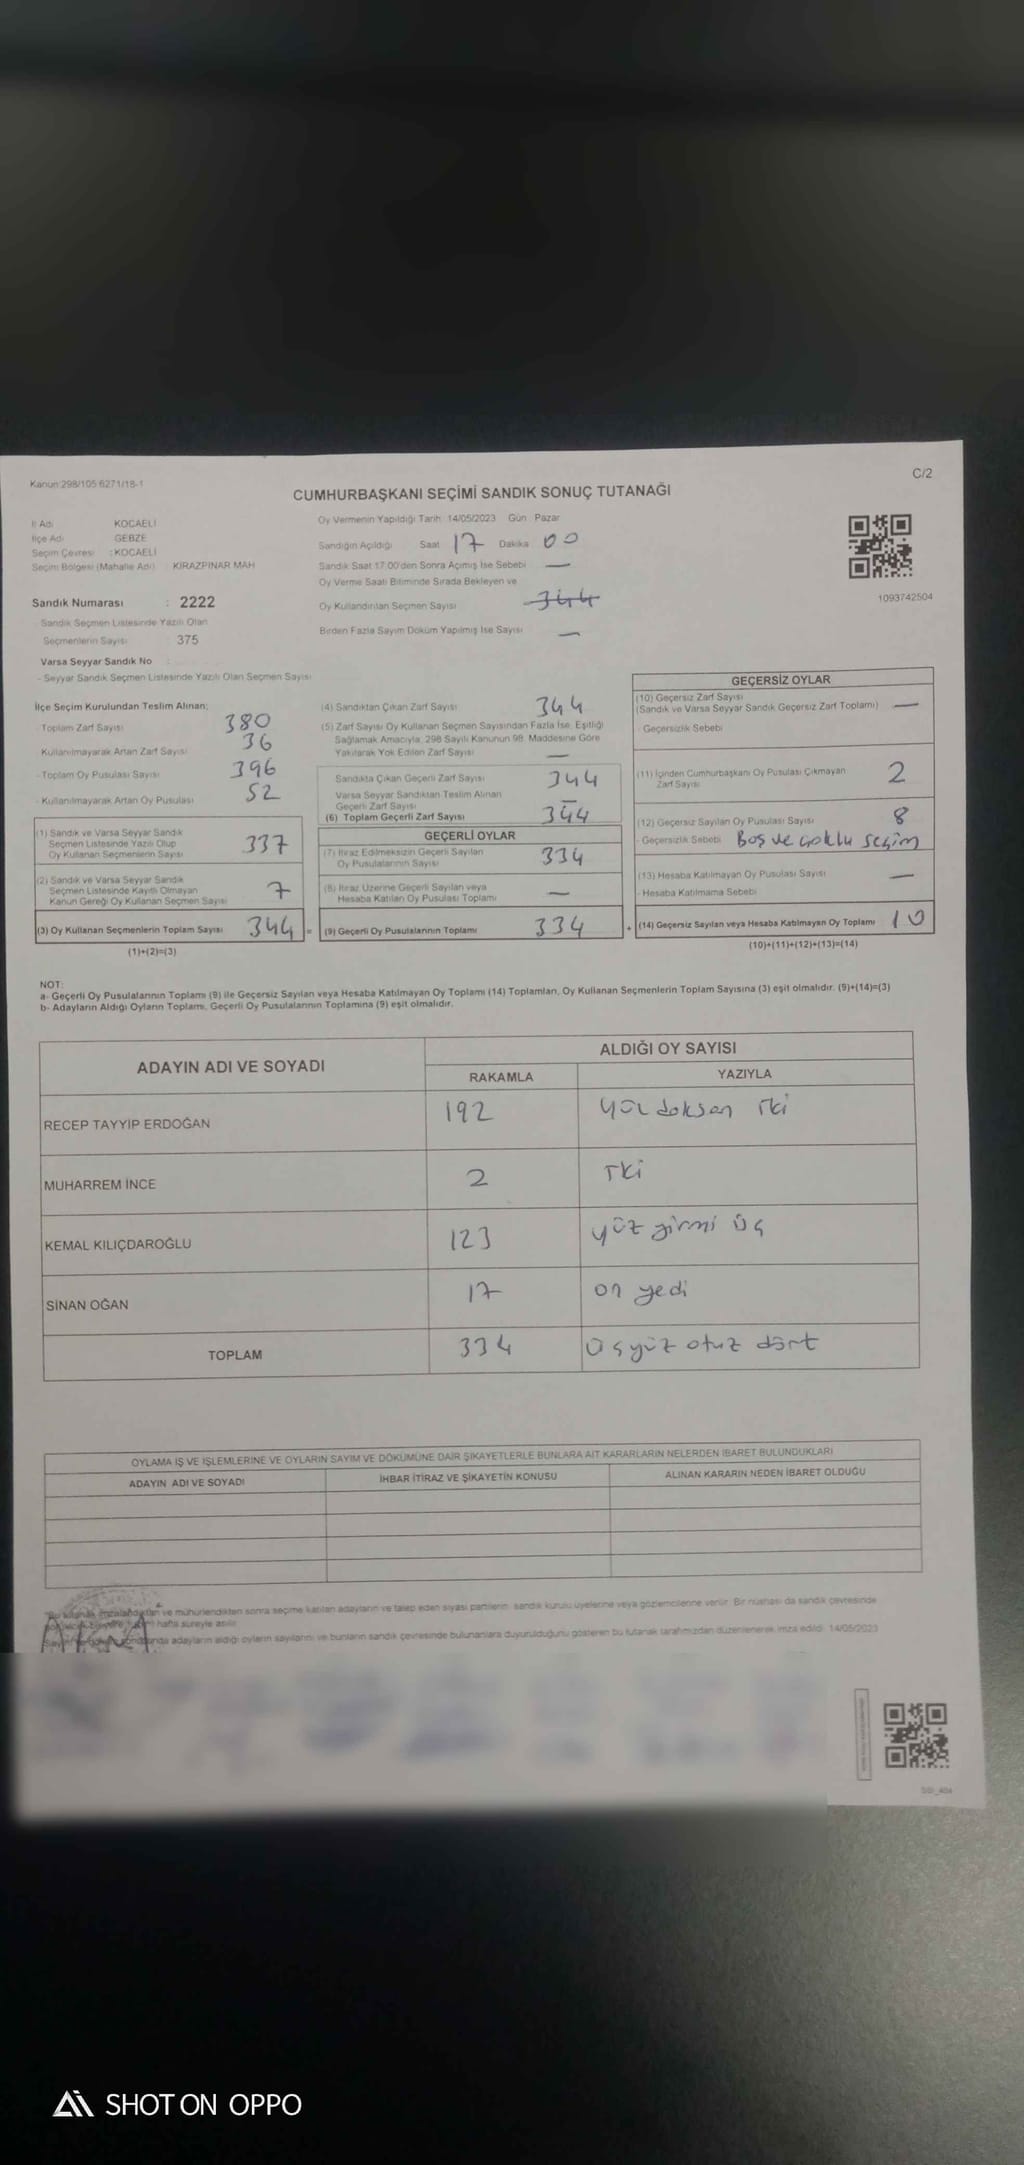 Kanun:298/105 6271/18-1
C/2
CUMHURBAŞKANI SEÇİMİ SANDIK SONUÇ TUTANAĞI
İl Adı KOCAELİ
İlçe Adı GEBZE
Seçim Çevresi : KOCAELİ
Seçim Bölgesi (Mahalle Adı) KIRAZPINAR MAH
Sandık Numarası : 2222
Sandık Seçmen Listesinde Yazılı Olan
Seçmenlerin Sayısı 375
Varsa Seyyar Sandık No
- Seyyar Sandık Seçmen Listesinde Yazılı Olan Seçmen Sayısı
Oy Vermenin Yapıldığı Tarih: 14/05/2023 Gün: Pazar
Sandığın Açıldığı Saat 17 Dakika 00
Sandık Saat 17:00'den Sonra Açımış İse Sebebi —
Oy Verme Saati Bitiminde Sırada Bekleyen ve
Oy Kullandırılan Seçmen Sayısı 344
Birden Fazla Sayım Döküm Yapılmış İse Sayısı —
1093742504
İlçe Seçim Kurulundan Teslim Alınan;
- Toplam Zarf Sayısı 380
- Kullanılmayarak Artan Zarf Sayısı 36
- Toplam Oy Pusulası Sayısı 396
- Kullanılmayarak Artan Oy Pusulası 52
(1) Sandık ve Varsa Seyyar Sandık
Seçmen Listesinde Yazılı Olup
Oy Kullanan Seçmenlerin Sayısı 337
(2) Sandık ve Varsa Seyyar Sandık
Seçmen Listesinde Kayıtlı Olmayan
Kanun Gereği Oy Kullanan Seçmen Sayısı 7
(3) Oy Kullanan Seçmenlerin Toplam Sayısı 344 =
(1)+(2)=(3)
(4) Sandıktan Çıkan Zarf Sayısı 344
(5) Zarf Sayısı Oy Kullanan Seçmen Sayısından Fazla İse, Eşitliği
Sağlamak Amacıyla, 298 Sayılı Kanunun 98. Maddesine Göre
Yakılarak Yok Edilen Zarf Sayısı —
Sandıkta Çıkan Geçerli Zarf Sayısı 344
Varsa Seyyar Sandıktan Teslim Alınan
Geçerli Zarf Sayısı —
(6) Toplam Geçerli Zarf Sayısı 344
GEÇERLİ OYLAR
(7) İtiraz Edilmeksizin Geçerli Sayılan
Oy Pusulalarının Sayısı 334
(8) İtiraz Üzerine Geçerli Sayılan veya
Hesaba Katılan Oy Pusulası Toplamı —
(9) Geçerli Oy Pusulalarının Toplamı 334 +
GEÇERSİZ OYLAR
(10) Geçersiz Zarf Sayısı
(Sandık ve Varsa Seyyar Sandık Geçersiz Zarf Toplamı) —
- Geçersizlik Sebebi
(11) İçinden Cumhurbaşkanı Oy Pusulası Çıkmayan
Zarf Sayısı 2
(12) Geçersiz Sayılan Oy Pusulası Sayısı 8
- Geçersizlik Sebebi Boş ve çoklu seçim
(13) Hesaba Katılmayan Oy Pusulası Sayısı —
- Hesaba Katılmama Sebebi
(14) Geçersiz Sayılan veya Hesaba Katılmayan Oy Toplamı 10
(10)+(11)+(12)+(13)=(14)
NOT:
a- Geçerli Oy Pusulalarının Toplamı (9) ile Geçersiz Sayılan veya Hesaba Katılmayan Oy Toplamı (14) Toplamları, Oy Kullanan Seçmenlerin Toplam Sayısına (3) eşit olmalıdır. (9)+(14)=(3)
b- Adayların Aldığı Oyların Toplamı, Geçerli Oy Pusulalarının Toplamına (9) eşit olmalıdır.
ADAYIN ADI VE SOYADI
ALDIĞI OY SAYISI
RAKAMLA YAZIYLA
RECEP TAYYİP ERDOĞAN 192 yüz doksan iki
MUHARREM İNCE 2 iki
KEMAL KILIÇDAROĞLU 123 yüz yirmi üç
SİNAN OĞAN 17 on yedi
TOPLAM 334 üçyüz otuz dört
OYLAMA İŞ VE İŞLEMLERİNE VE OYLARIN SAYIM VE DÖKÜMÜNE DAİR ŞİKAYETLERLE BUNLARA AİT KARARLARIN NELERDEN İBARET BULUNDUKLARI
ADAYIN ADI VE SOYADI İHBAR İTİRAZ VE ŞİKAYETİN KONUSU ALINAN KARARIN NEDEN İBARET OLDUĞU
ve mühürlendikten sonra seçime katılan adayların ve talep eden siyasi partilerin sandık kurulu üyelerine veya gözlemcilerine verilir. Bir nüshası da sandık çevresinde
hafta süreyle asılır
adayların aldığı oyların sayılarını ve bunların sandık çevresinde bulunanlara duyurulduğunu gösteren bu tutanak tarafımızdan düzenlenerek imza edildi. 14/05/2023
SHOT ON OPPO